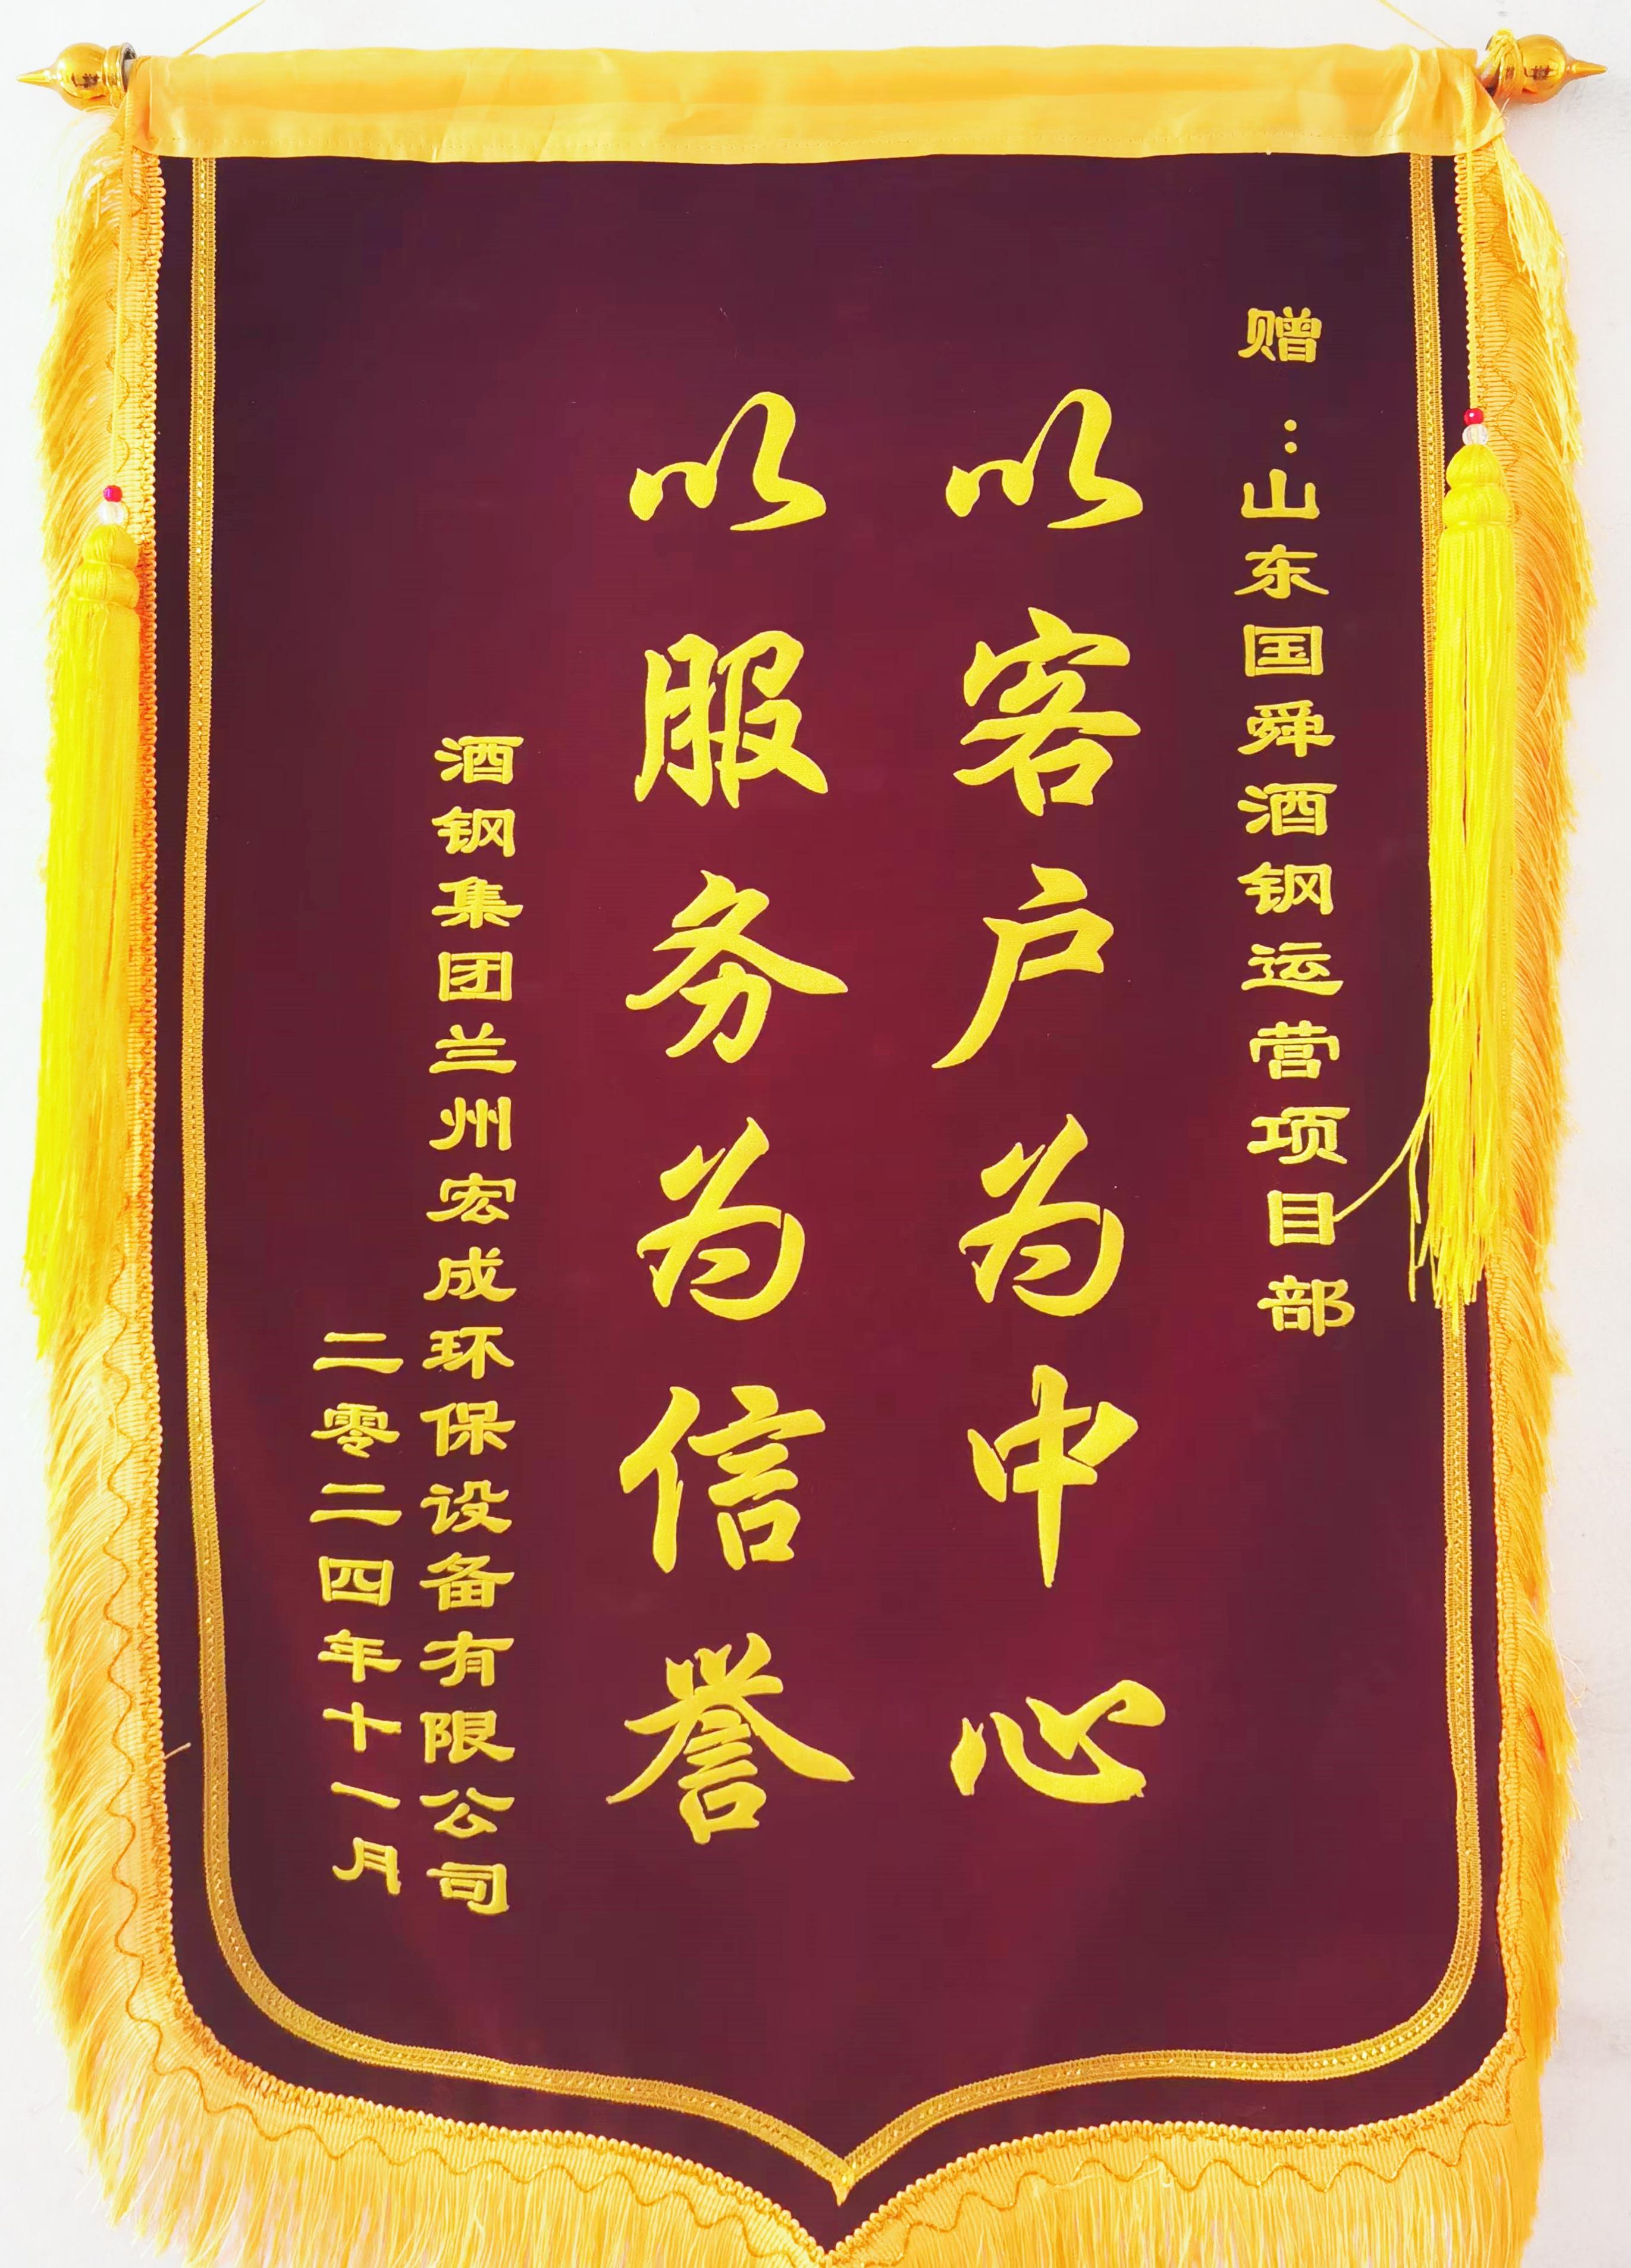 赠：山东国舜酒钢运营项目部
以客户为中心
以服务为信誉
酒钢集团兰州宏成环保设备有限公司
二零二四年十一月